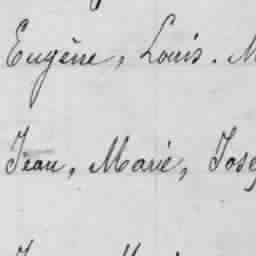 Eugène, Louis. M
Jean, Marie, Jose